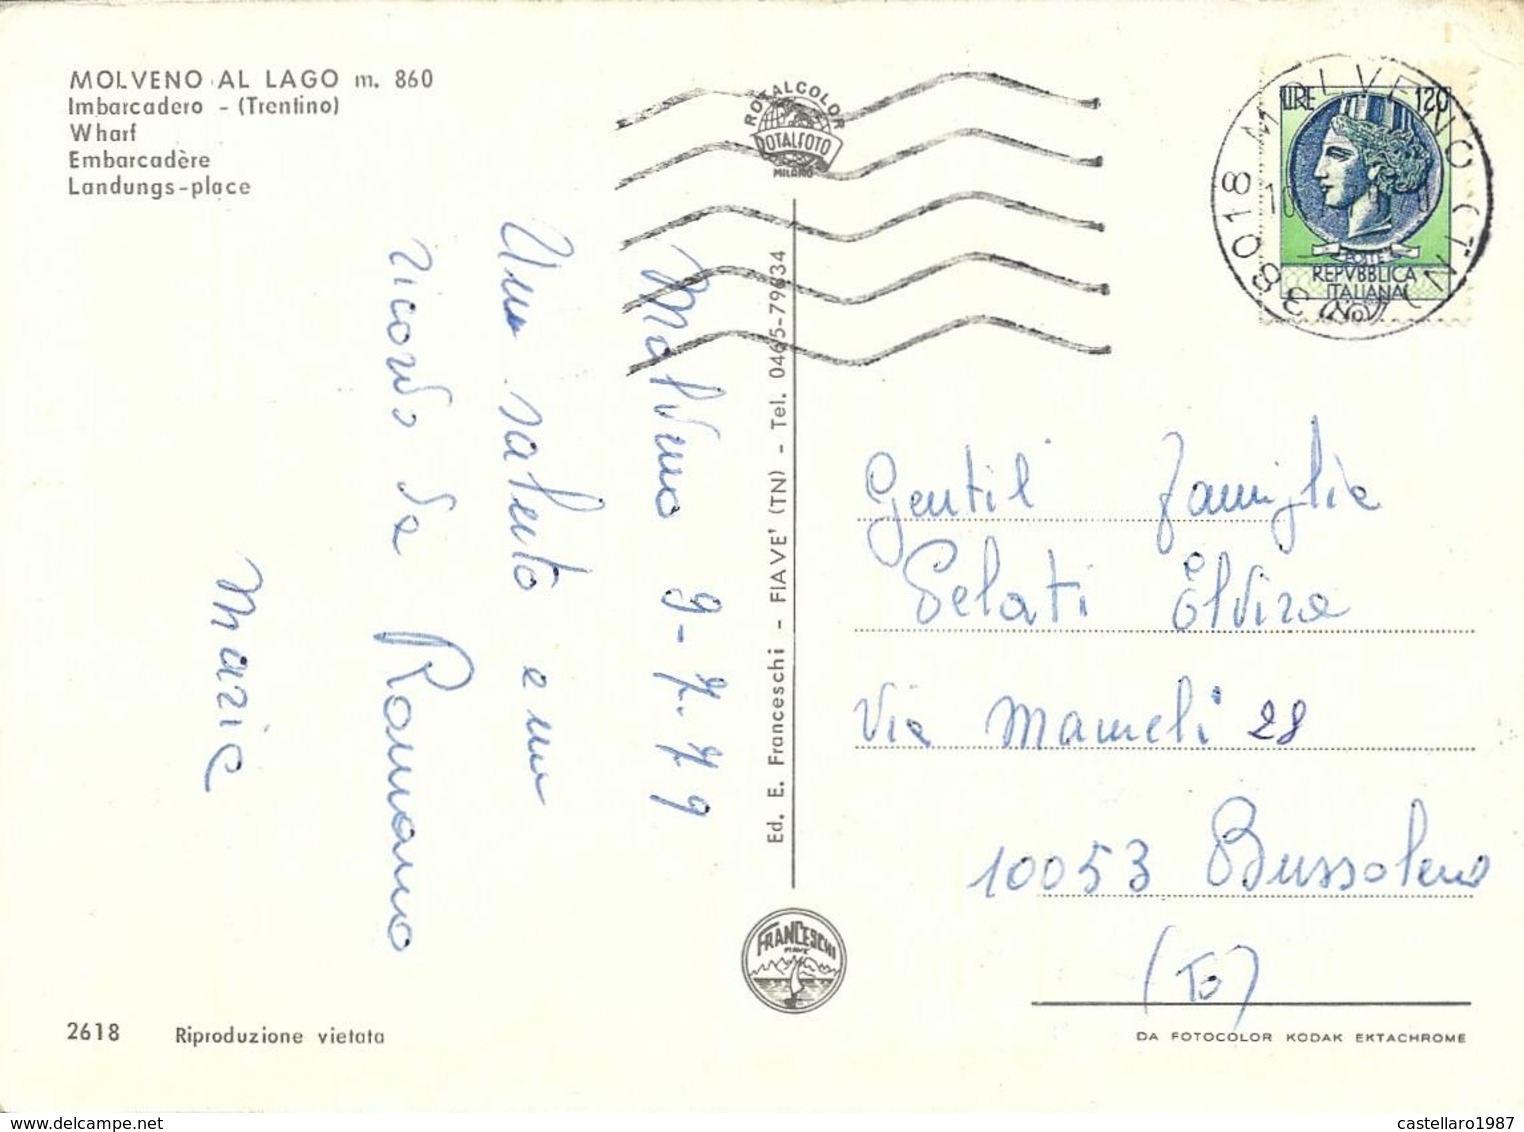 MOLVENO AL LAGO m. 860
Imbarcadero - (Trentino)
Wharf
Embarcadère
Landungs-place
ROTALCOLOR
ROTALFOTO
MILANO
LIRE 120
POSTE
REPVBBLICA
ITALIANA
38018 MOLVENO (TN)
Molveno 9-7-79
Un saluto e un
ricordo da Romano
Maria
Ed. E. Franceschi - FIAVE' (TN) - Tel. 0465-79634
Gentil Famiglia
Gelati Elvira
Via Mameli 28
10053 Bussoleno
(To)
FRANCESCHI
FIAVÉ
2618 Riproduzione vietata
DA FOTOCOLOR KODAK EKTACHROME
castellaro1987